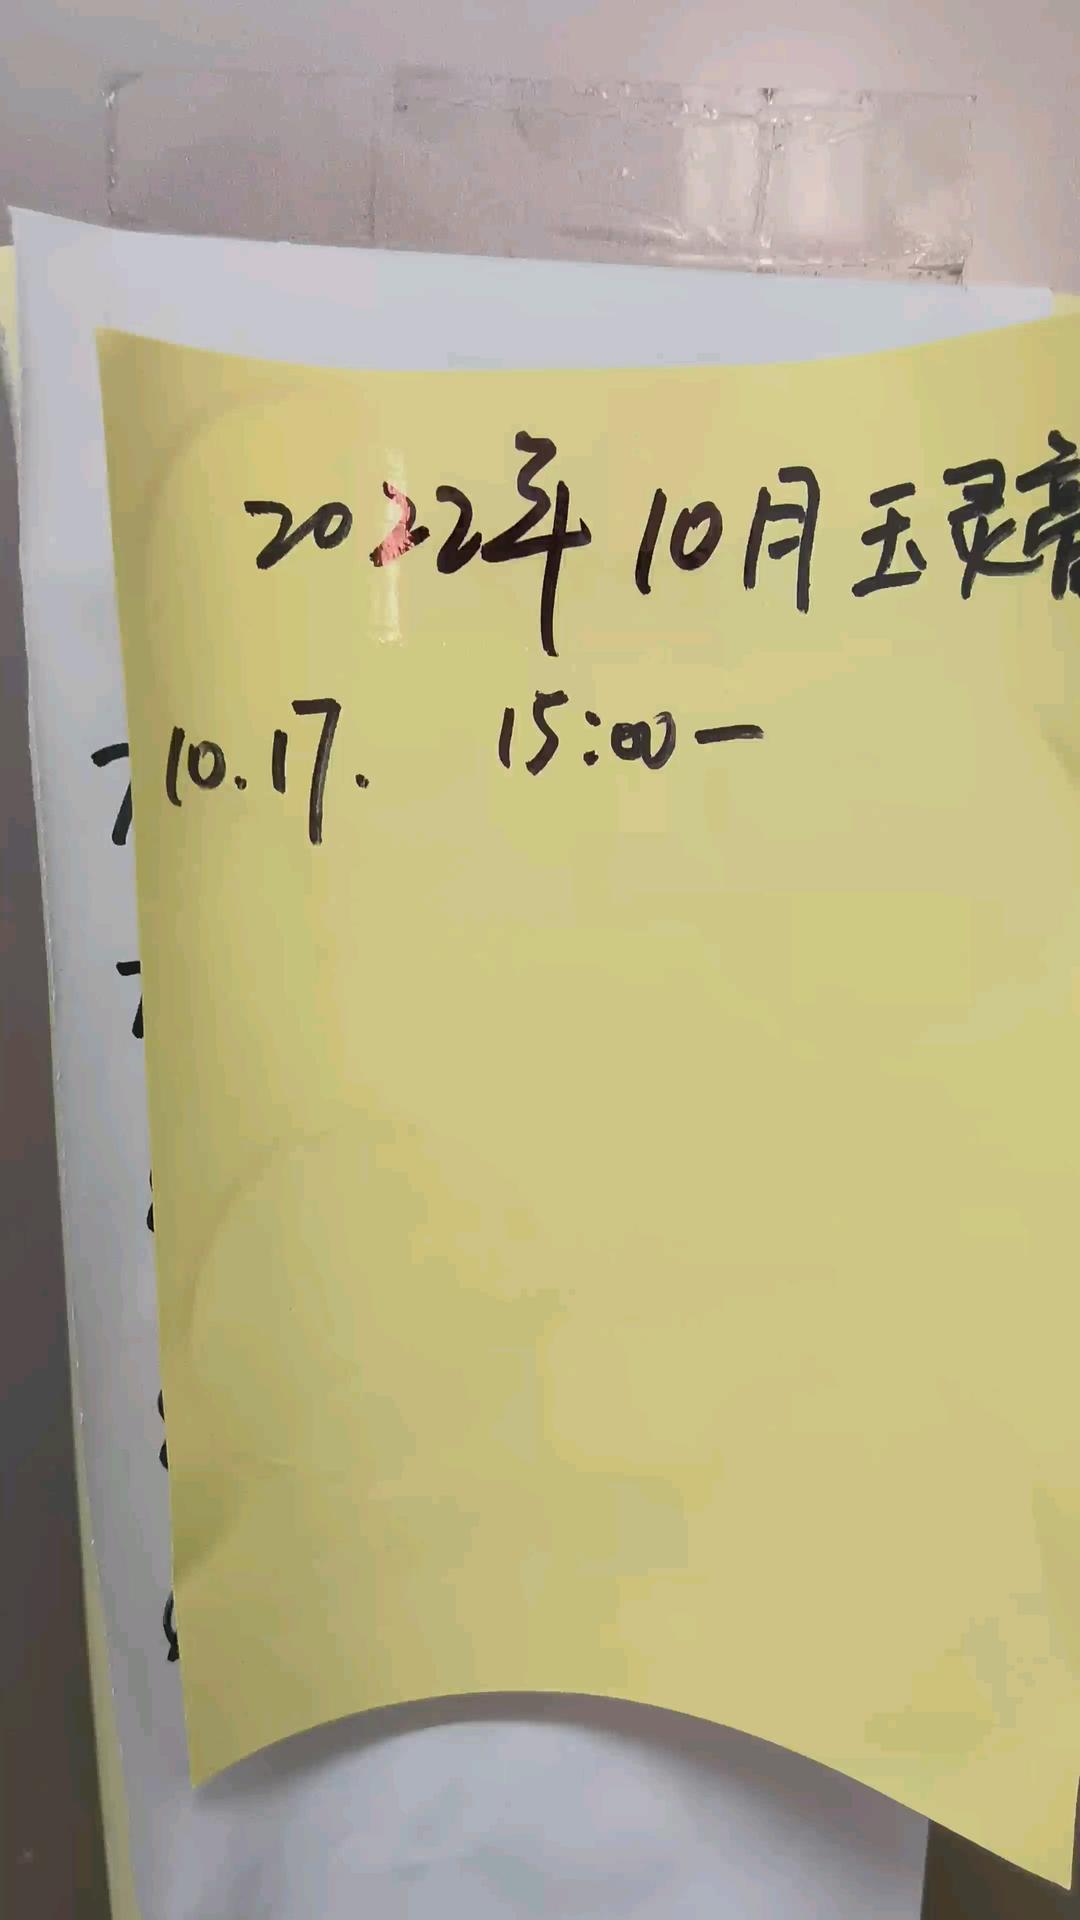 2022年10月玉灵膏
10.17. 15:00—